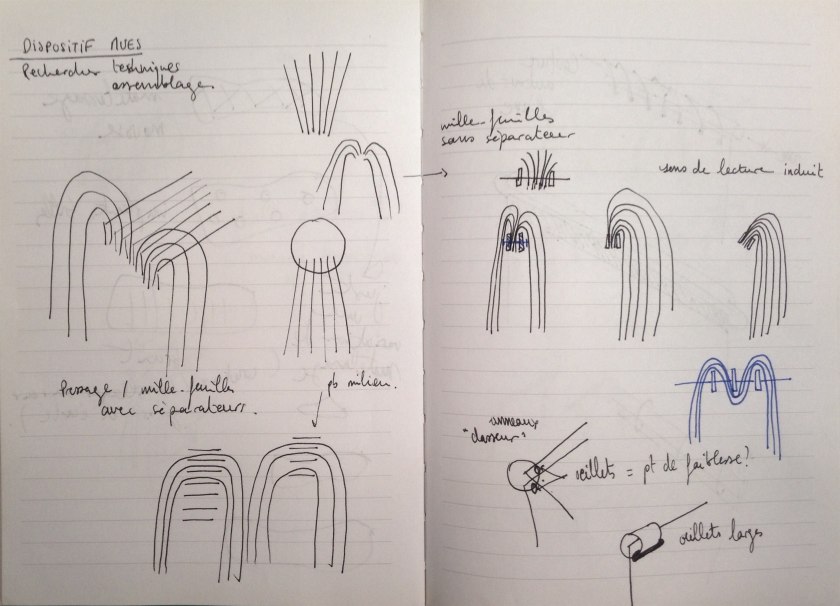 DISPOSITIF NUES
Recherches techniques
assemblages
Pressage / mille-feuilles
avec séparateurs.
pb milieu.
mille-feuilles
sans séparateur
sens de lecture induit
anneaux
"classeur"
œillets = pt de faiblesse?
œillets larges